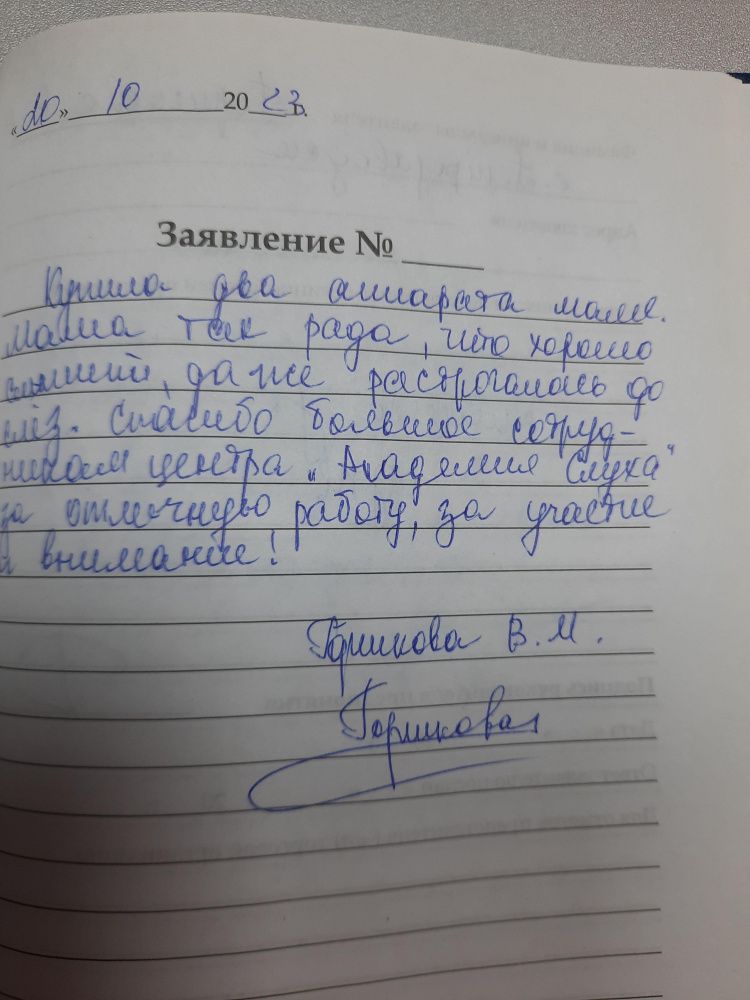 «20» 10 2023 г.
Заявление №
Купила два аппарата маме.
Мама так рада, что хорошо
слышит, даже растрогалась до
слёз. Спасибо большое сотруд-
никам центра „Академия Слуха"
за отличную работу, за участие
и внимание!
Горшкова В.М.
Горшкова